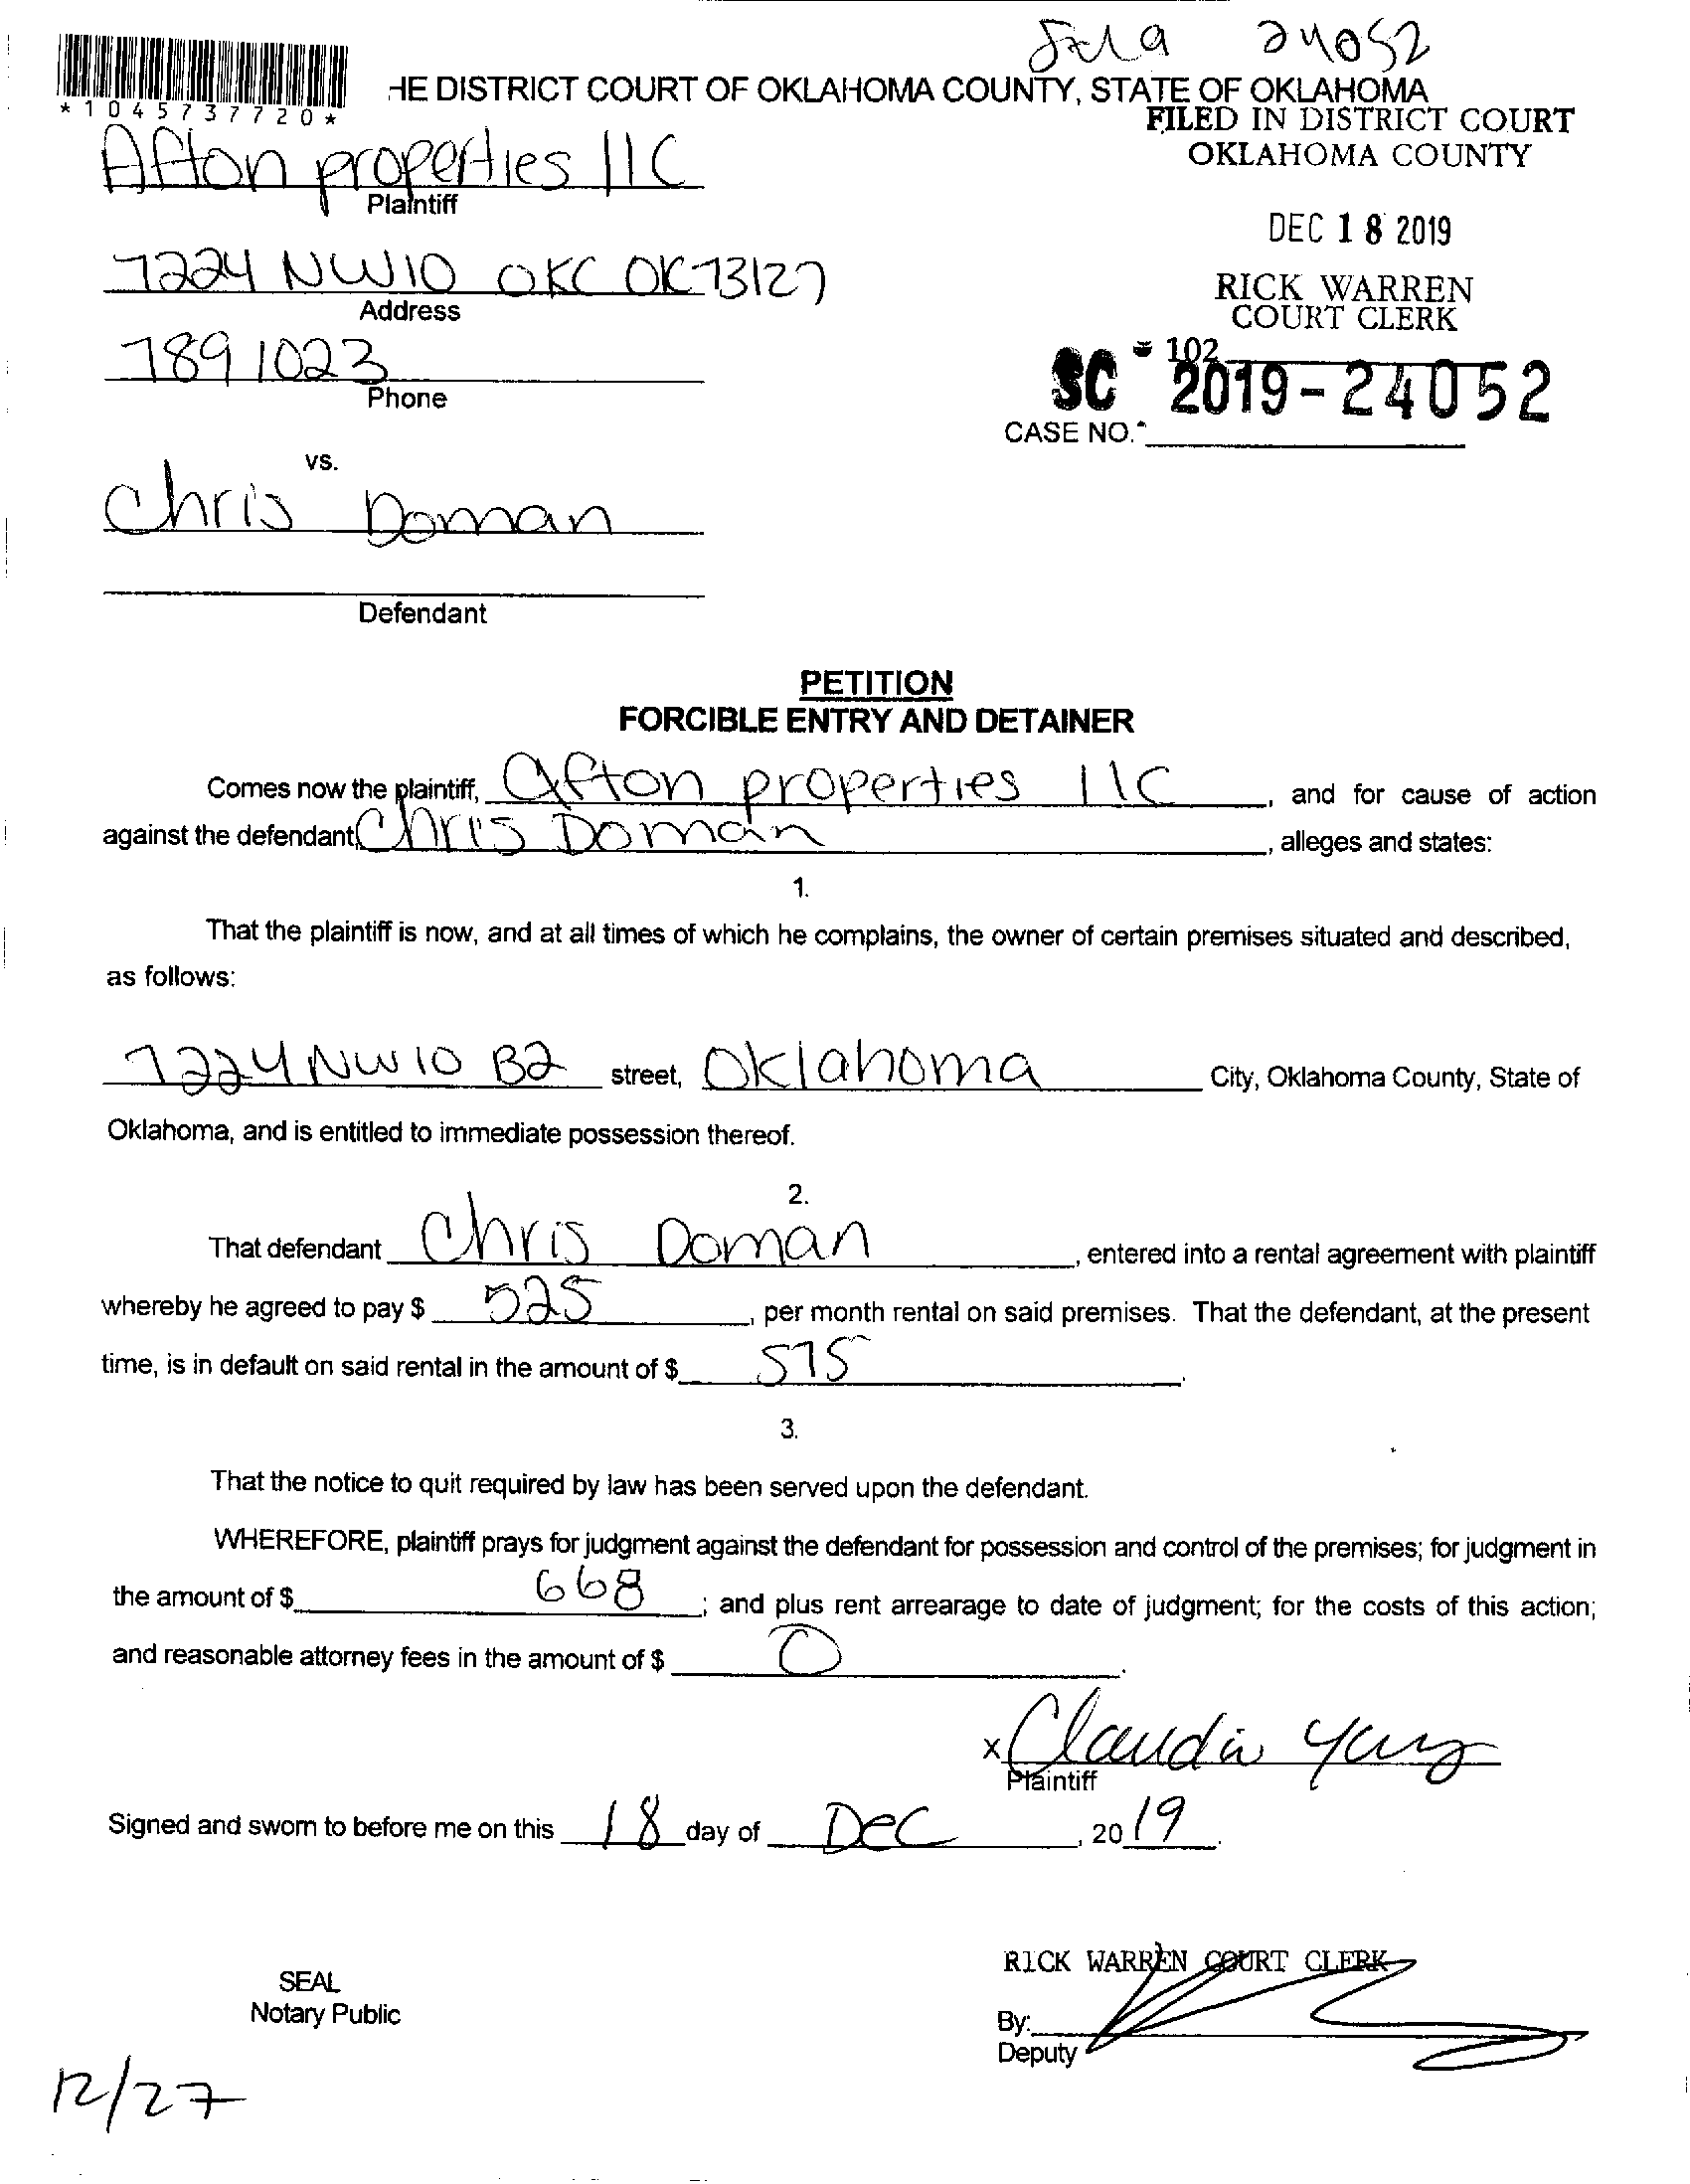 24052
HE DISTRICT COURT OF OKLAHOMA COUNTY, STATE OF OKLAHOMA
*1045737720*
FILED IN DISTRICT COURT
OKLAHOMA COUNTY
Afton properties llC
Plaintiff
DEC 18 2019
7224 NW10 OKC OK 73127
Address
RICK WARREN
COURT CLERK
789 1023
Phone
102
SC 2019-24052
CASE NO.
vs.
Chris Doman
Defendant
PETITION
FORCIBLE ENTRY AND DETAINER
Comes now the plaintiff, Afton properties llC, and for cause of action
against the defendant, Chris Doman, alleges and states:
1.
That the plaintiff is now, and at all times of which he complains, the owner of certain premises situated and described,
as follows:
7224 NW 10 B2 street, Oklahoma City, Oklahoma County, State of
Oklahoma, and is entitled to immediate possession thereof.
2.
That defendant Chris Doman, entered into a rental agreement with plaintiff
whereby he agreed to pay $ 525, per month rental on said premises. That the defendant, at the present
time, is in default on said rental in the amount of $ 575.
3.
That the notice to quit required by law has been served upon the defendant.
WHEREFORE, plaintiff prays for judgment against the defendant for possession and control of the premises; for judgment in
the amount of $ 668; and plus rent arrearage to date of judgment; for the costs of this action;
and reasonable attorney fees in the amount of $ 0.
x Claudia
Plaintiff
Signed and sworn to before me on this 18 day of Dec, 2019.
RICK WARREN COURT CLERK
SEAL
Notary Public
By:
Deputy
12/27